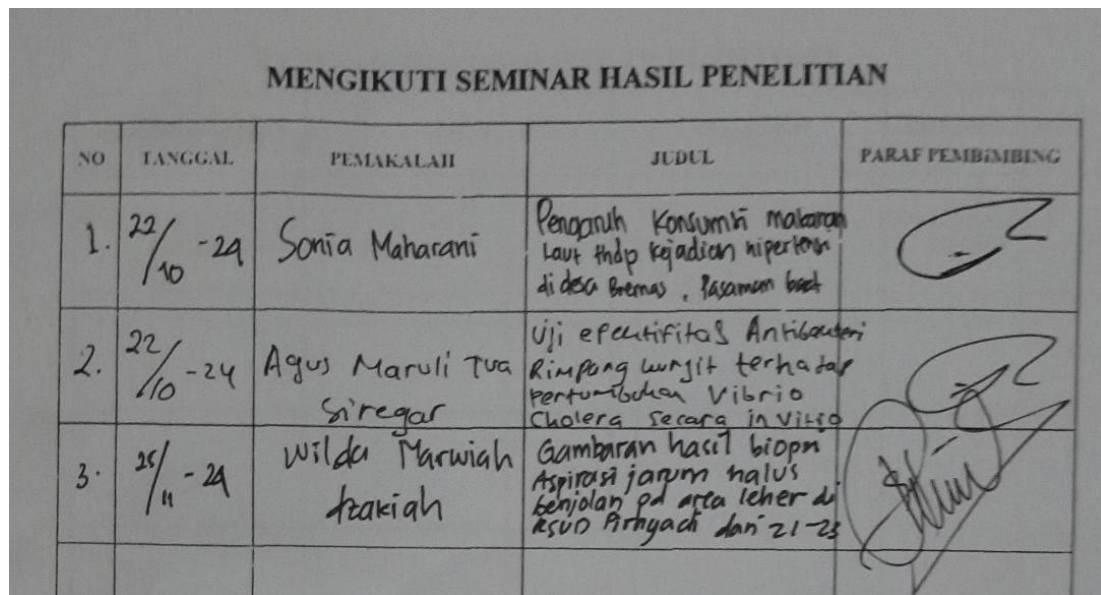 MENGIKUTI SEMINAR HASIL PENELITIAN
NO TANGGAL PEMAKALAH JUDUL PARAF PEMBIMBING
1. 22/10 -24 Sonia Maharani Pengaruh Konsumsi makanan
Laut thdp kejadian hipertensi
di desa Bremas, Pasaman barat
2. 22/10 -24 Agus Maruli Tua
Siregar
Uji efektifitas Antibakteri
Rimpang kunyit terhadap
pertumbuhan Vibrio
Cholera secara in vitro
3. 25/11 - 24 Wilda Marwiah
Azakiah
Gambaran hasil biopsi
Aspirasi jarum halus
benjolan pd area leher di
RSUD Pirngadi dari 21-23